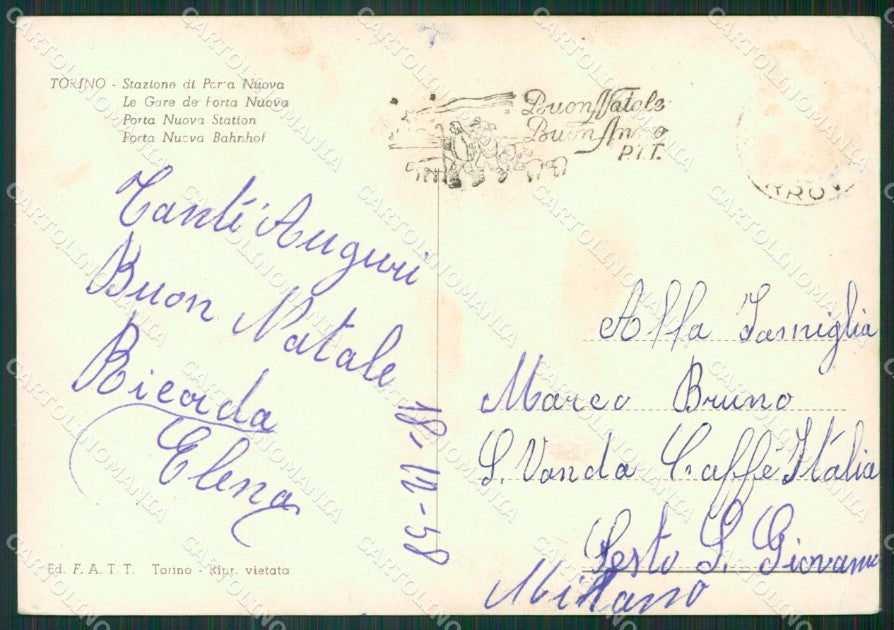 TORINO - Stazione di Porta Nuova
Le Gare de Porta Nuova
Porta Nuova Station
Porta Nuova Bahnhof
Buon Natale
Buon Anno
P.T.T.
Tanti Auguri
Buon Natale
Ricorda
Elena
58
Alla Famiglia
Marco Bruno
S. Vanda Caffè Italia
Sesto S. Giovanni
Milano
Ed. F. A. T. T. Torino - Ripr. vietata
CARTOLINOMANIA